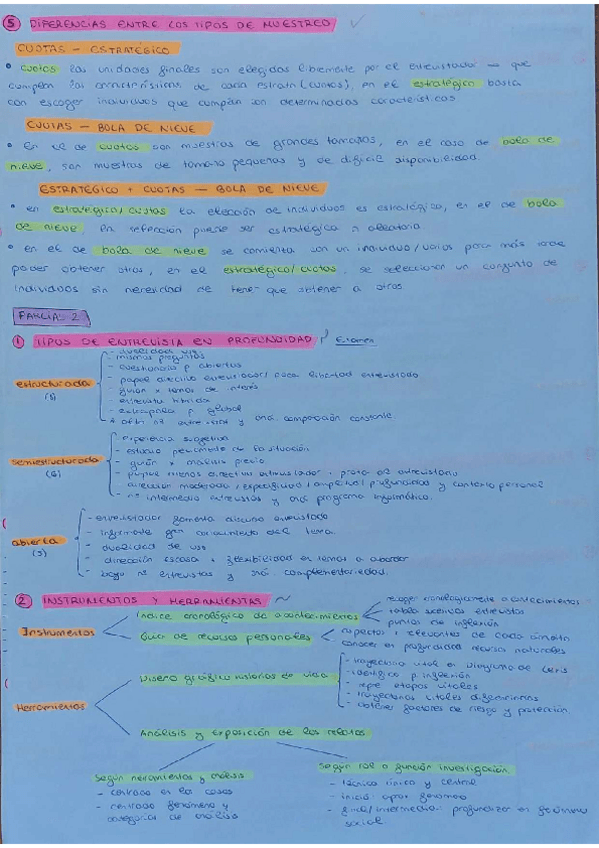 5 DIFERENCIAS ENTRE LOS TIPOS DE MUESTREO
CUOTAS - ESTRATÉGICO
• cuotas las unidades finales son elegidas libremente por el entrevistador → que
cumplan las características de cada estrato (cuotas), en el estratégico basta
con escoger individuos que cumplan con determinadas características.
CUOTAS - BOLA DE NIEVE
• En el de cuotas son muestras de grandes tamaños, en el caso de bola de
nieve, son muestras de tamaño pequeñas y de difícil disponibilidad.
ESTRATÉGICO + CUOTAS - BOLA DE NIEVE
• en estratégico/cuotas la elección de individuos es estratégica, en el de bola
de nieve, la selección puede ser estratégica o aleatoria.
• en el de bola de nieve se comienza con un individuo/varios para más tarde
poder obtener otros, en el estratégico/cuotas, se seleccionan un conjunto de
individuos sin necesidad de tener que obtener a otros
PARCIAL 2
1 TIPOS DE ENTREVISTA EN PROFUNDIDAD Examen
- mismas preguntas
- cuestionario p abiertas
- papel directivo entrevistador/ poca libertad entrevistado
estructurada
- guión x temas de interés
(5)
- entrevista híbrida
- extrapola p global
nº entrevistas y aná comparación constante
- experiencia subjetiva
- estudio previamente de la situación
semiestructurada
- guión x análisis previo
(6)
- papel menos directivo entrevistador
- dirección moderada
- nº intermedio entrevistas y aná programa informático.
- entrevistador fomenta discurso entrevistado
- informante gran conocimiento del tema
abierta
- dualidad de uso
(5)
- dirección escasa + flexibilidad en temas a abordar
- bajo nº entrevistas y aná complementariedad.
2 INSTRUMENTOS Y HERRAMIENTAS ~
recoger cronológicamente acontecimientos
Índice cronológico de acontecimientos
puntos de inflexión
Instrumentos
Guía de recursos personales
aspectos + relevantes de cada ámbito
- trayectoria vital en Diagrama de Lexis
Diseño gráfico historias de vida
- identifica p inflexión
- etapas vitales
Herramientas
- trayectorias vitales
- obtener factores de riesgo y protección
Análisis y exposición de los relatos
Según herramientas y análisis
Según rol o función investigación
- centrado en los casos
- técnica única y central
- centrado fenómeno y
- inicio: aprox fenómeno
categorías de análisis
- final/intermedio: profundizar en fenómeno
social